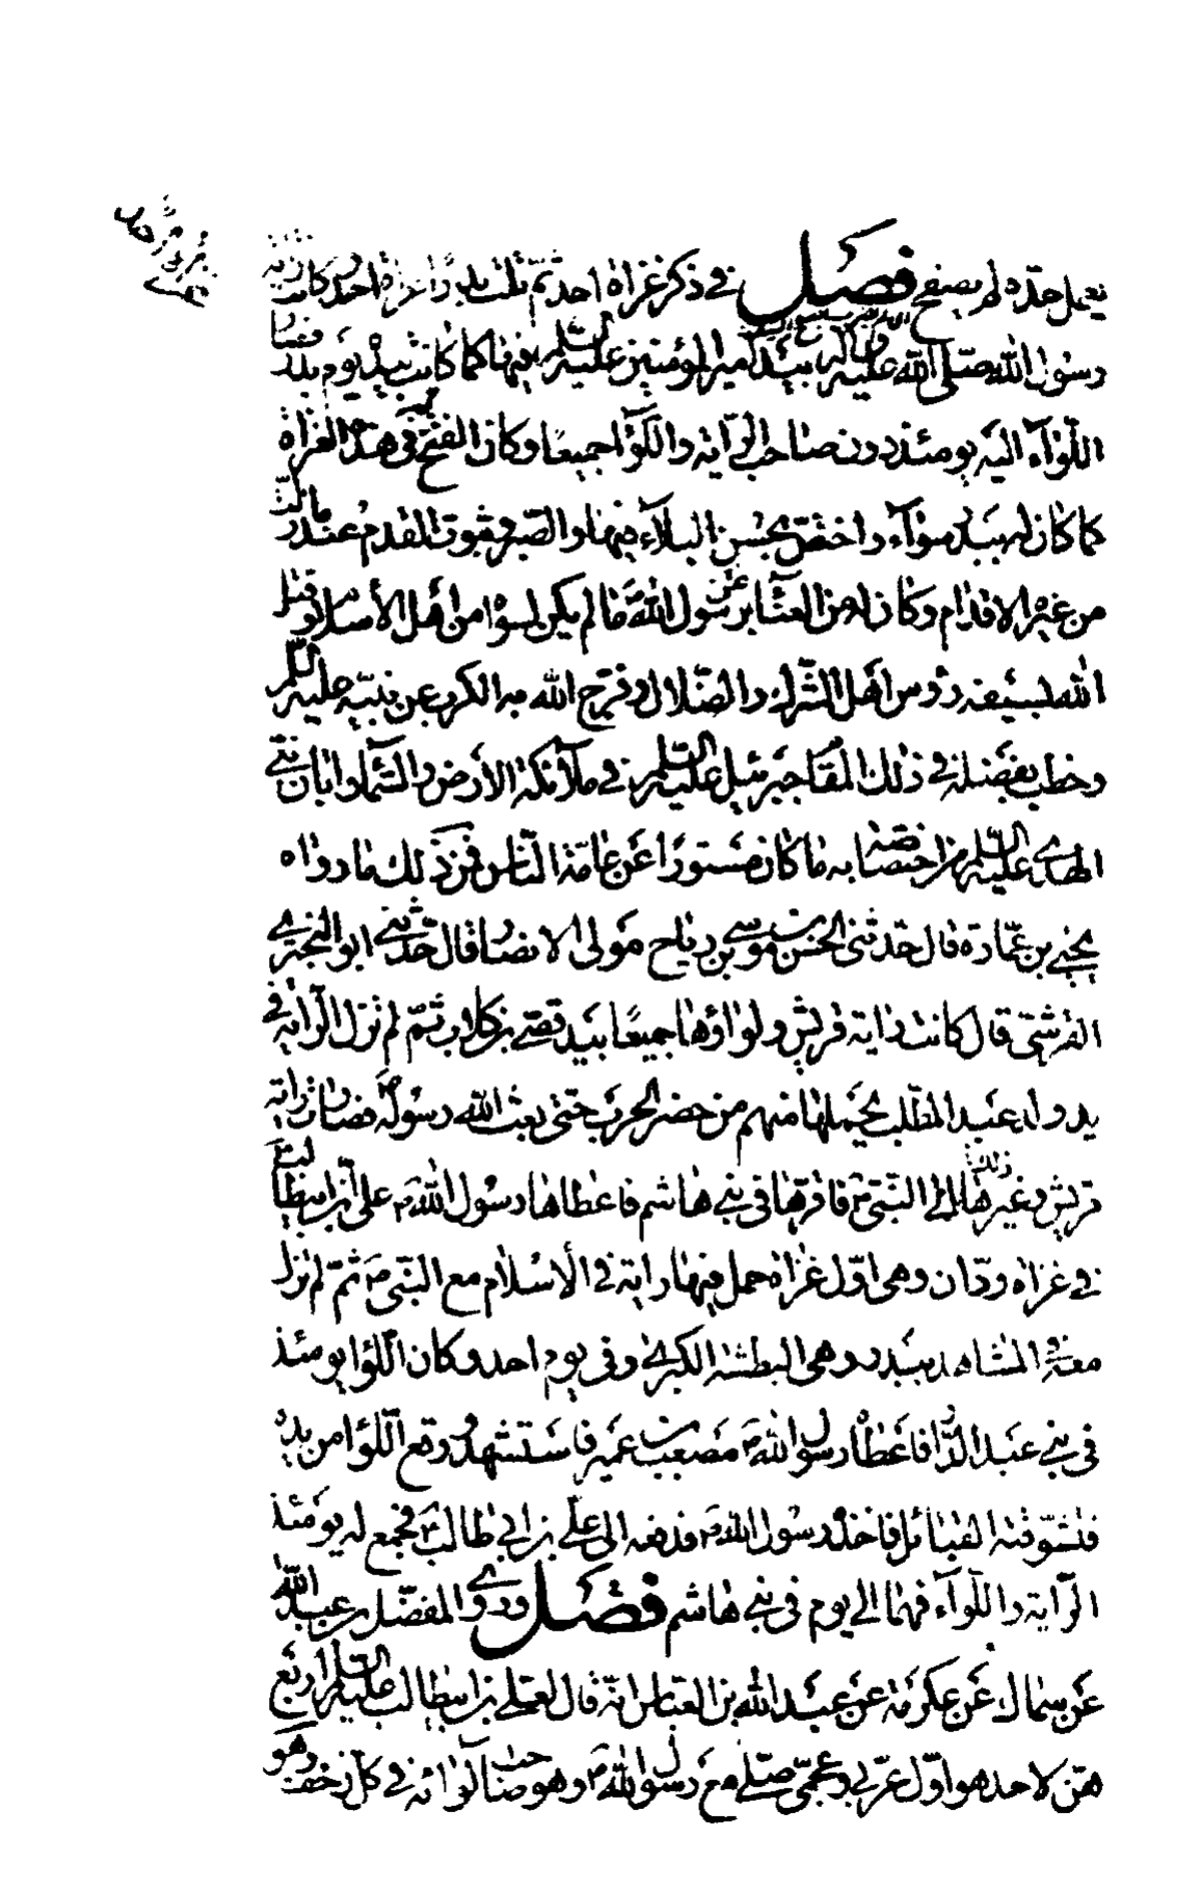 يعمل حده لم يصفح فصل في ذكر غزاة احد ثم تلت بدرًا غزاة احد وكانت راية
رسول الله صلى الله عليه واله بيد أمير المؤمنين عليه السلم فيها كما كانت بيده يوم بدر فصار
اللوآء اليه يومئذ دون صاحب الراية واللوآ جميعًا وكان الفتح له في هذه الغزاة
كما كان له ببدر سوآء واختص بحسن البلآء فيها والصبر وثبوت القدم عند ما زلت
من غيره الاقدام وكان له من العنآ برسول الله ص ما لم يكن لسواه من أهل الأسلام وقتل
الله بسيفه رؤس اهل الشرك والضلال وفرج الله به الكرب عن نبيه عليه السلم
وخطب بفضله في ذلك المقام جبرئيل عليه السلم في ملآئكة الأرض والسمآء وابان نبي
الهدى عليه السلم من اختصاصه به ما كان مستورًا عن عامة الناس فمن ذلك ما رواه
يحيى بن عمارة قال حدثنى الحسن بن موسى بن رياح مولى الانصار قال حدثني ابو البختري
القرشي قال كانت راية قريش ولواؤها جميعًا بيد قصى بن كلاب ثم لم تزل الراية في
يد ولد عبد المطلب يحملها منهم من حضر الحرب حتى بعث الله رسوله ص فصارت راية
قريش وغير ذلك الى النبي ص فاقرها في بني هاشم فاعطاها رسول الله ص على بن ابيطالب ع
في غزاة ودان وهى اول غزاة حمل فيها راية في الأسلام مع النبي ص ثم لم تزل
معه في المشاهد ببدر وهى البطشة الكبرى وفى يوم احد وكان اللوآ يومئذ
فى بني عبد الدار فاعطاه رسول الله ص مصعب بن عمير فاستشهد ووقع اللوآ من يده
فتشوفته القبائل فاخذه رسول الله ص فدفعه الى على بن ابي طالب ع فجمع له يومئذ
الراية واللوآء فهما الى يوم فى بني هاشم فصل وروى المفضل بن عبد الله
عن سماك عن عكرمة عن عبد الله بن العباس انه قال لعلى بن ابيطالب عليه السلم اربع
هن لاحد هو اول عربي وعجمى صلى مع رسول الله ص وهو صاحب لوائه في كل زحف وهو